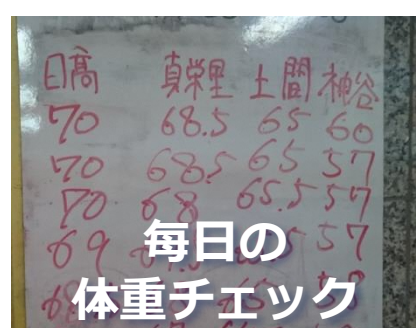 日高 真栄里 土間 神谷
70 68.5 65 60
70 68.5 65 57
70 68 65.5 57
69 57
毎日の
体重チェック